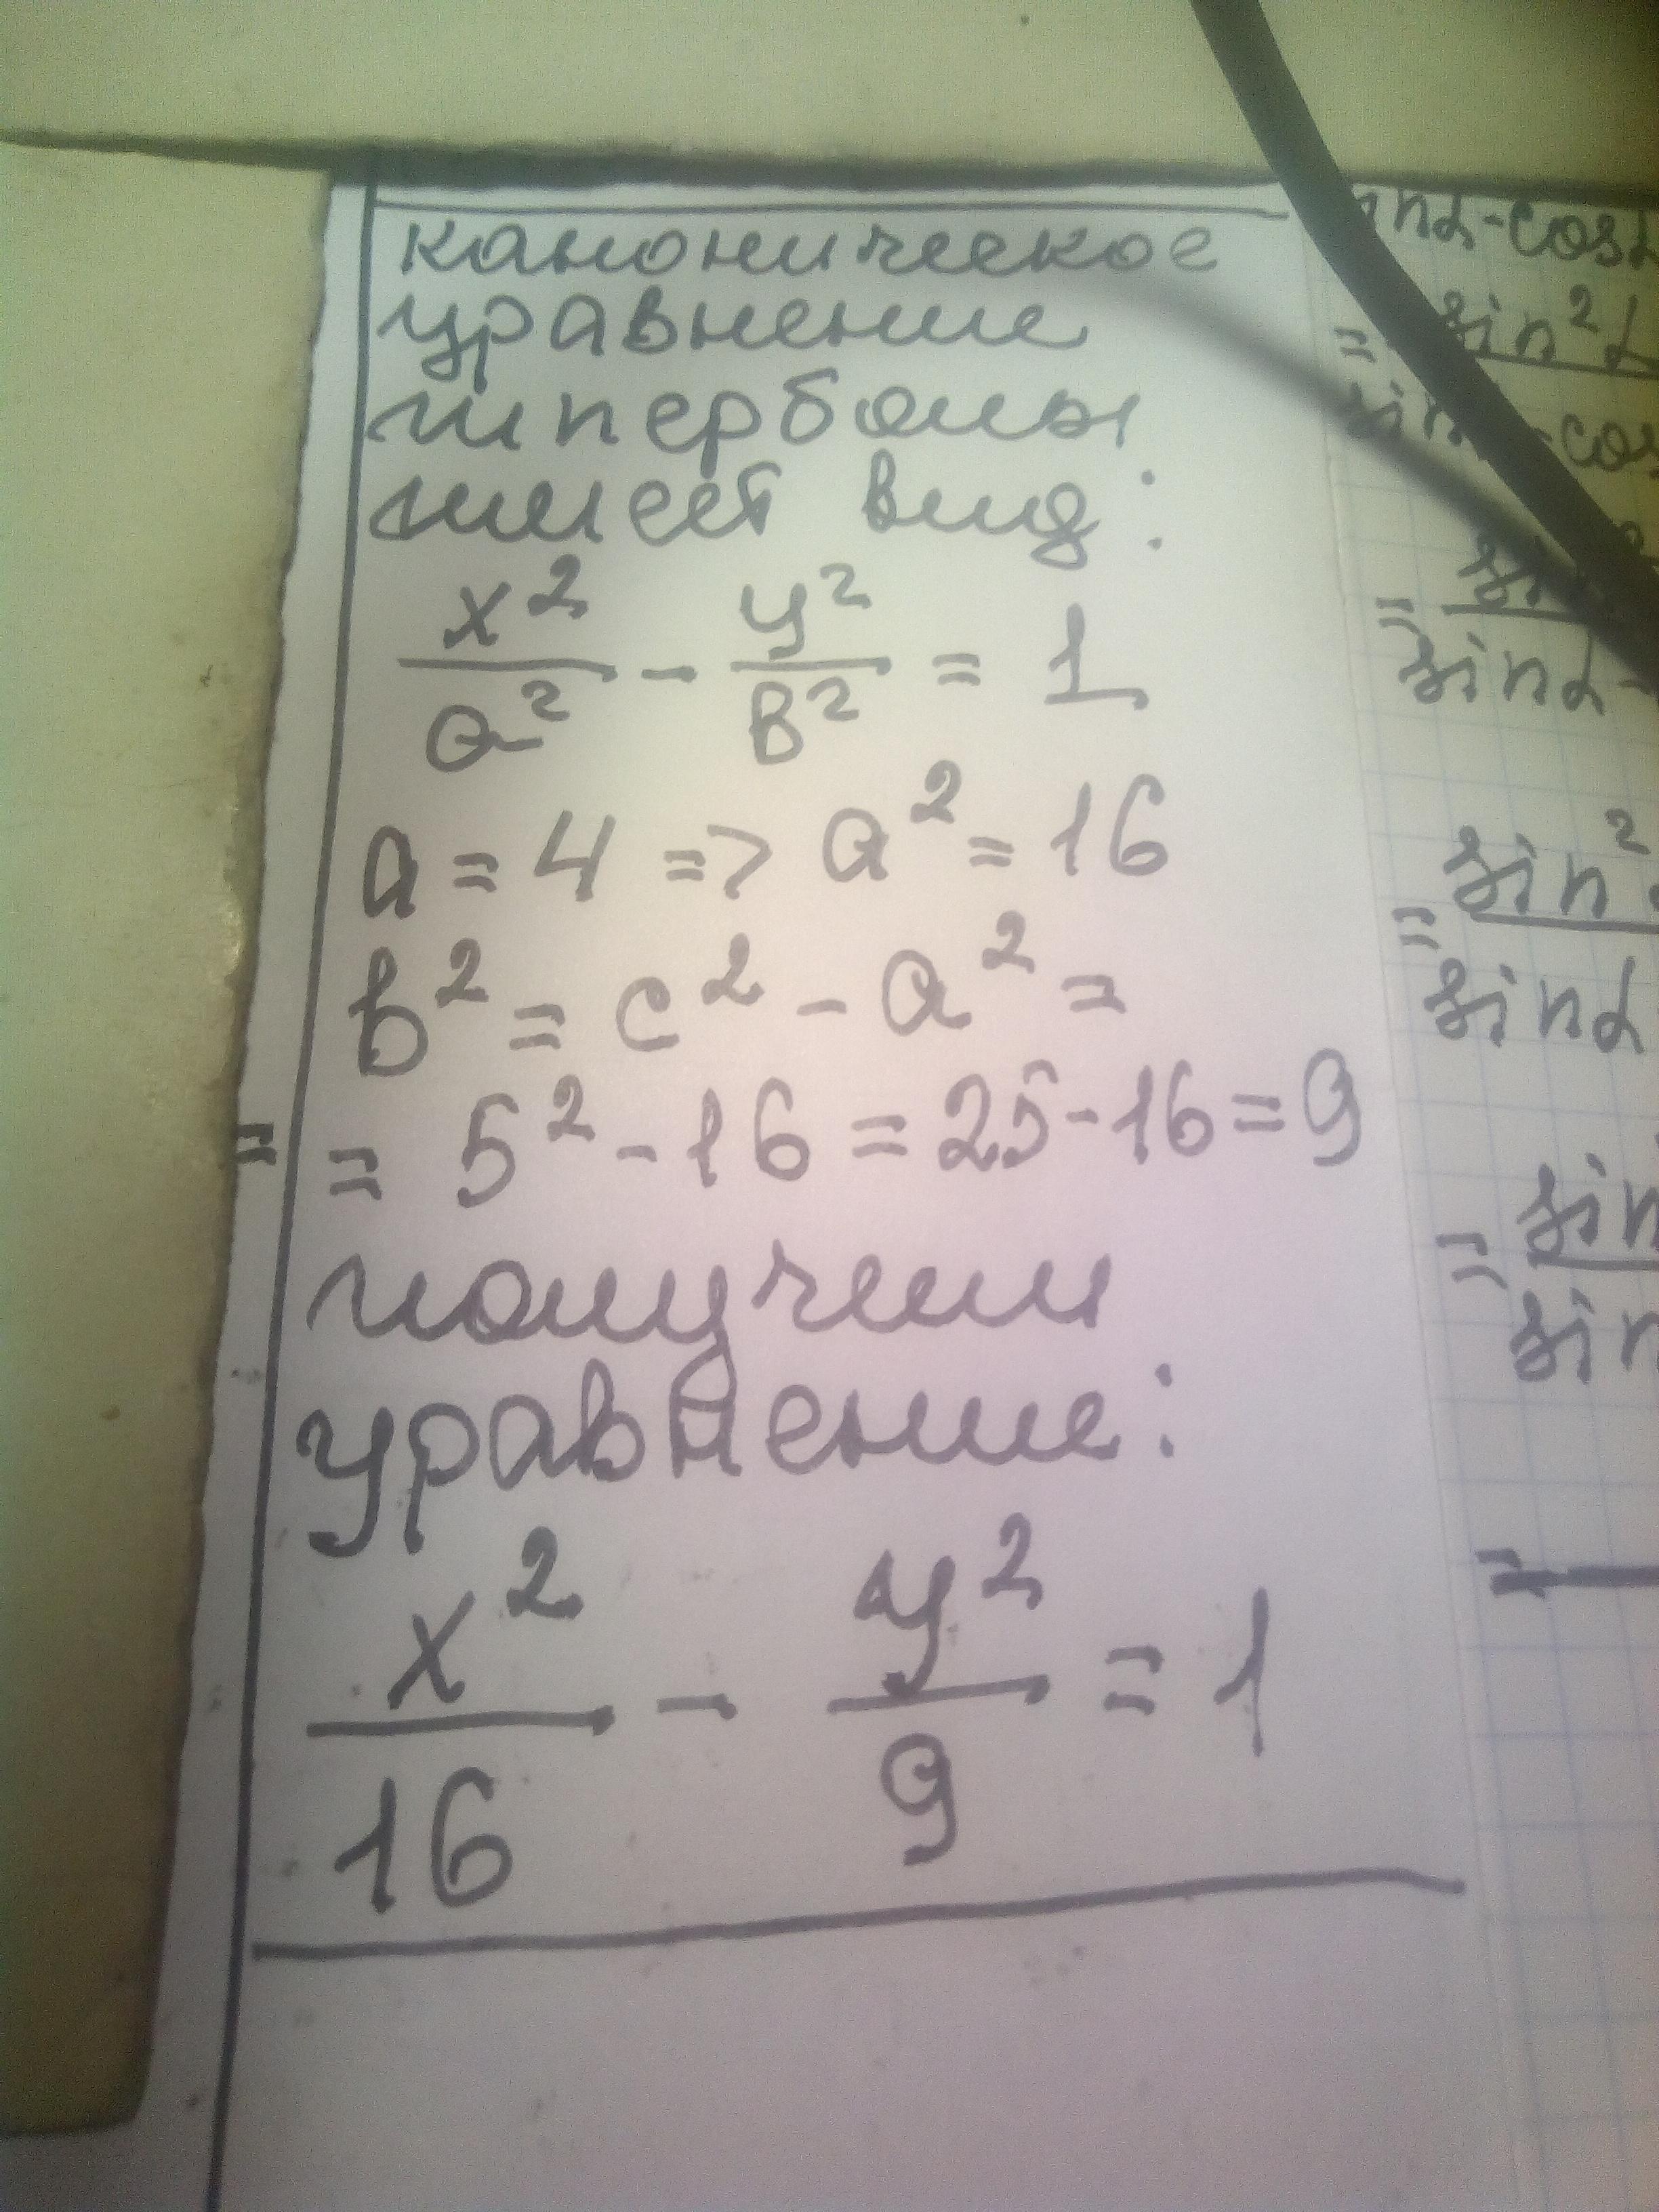 каноническое
уравнение
гиперболы
имеет вид:
x²/a² - y²/b² = 1
a = 4 => a² = 16
b² = c² - a² =
= = 5² - 16 = 25 - 16 = 9
получим
уравнение:
x²/16 - y²/9 = 1
-cosα
= sin²α
-cos
=
sinα-
sin²
=
sinα
sin
=
sin
=